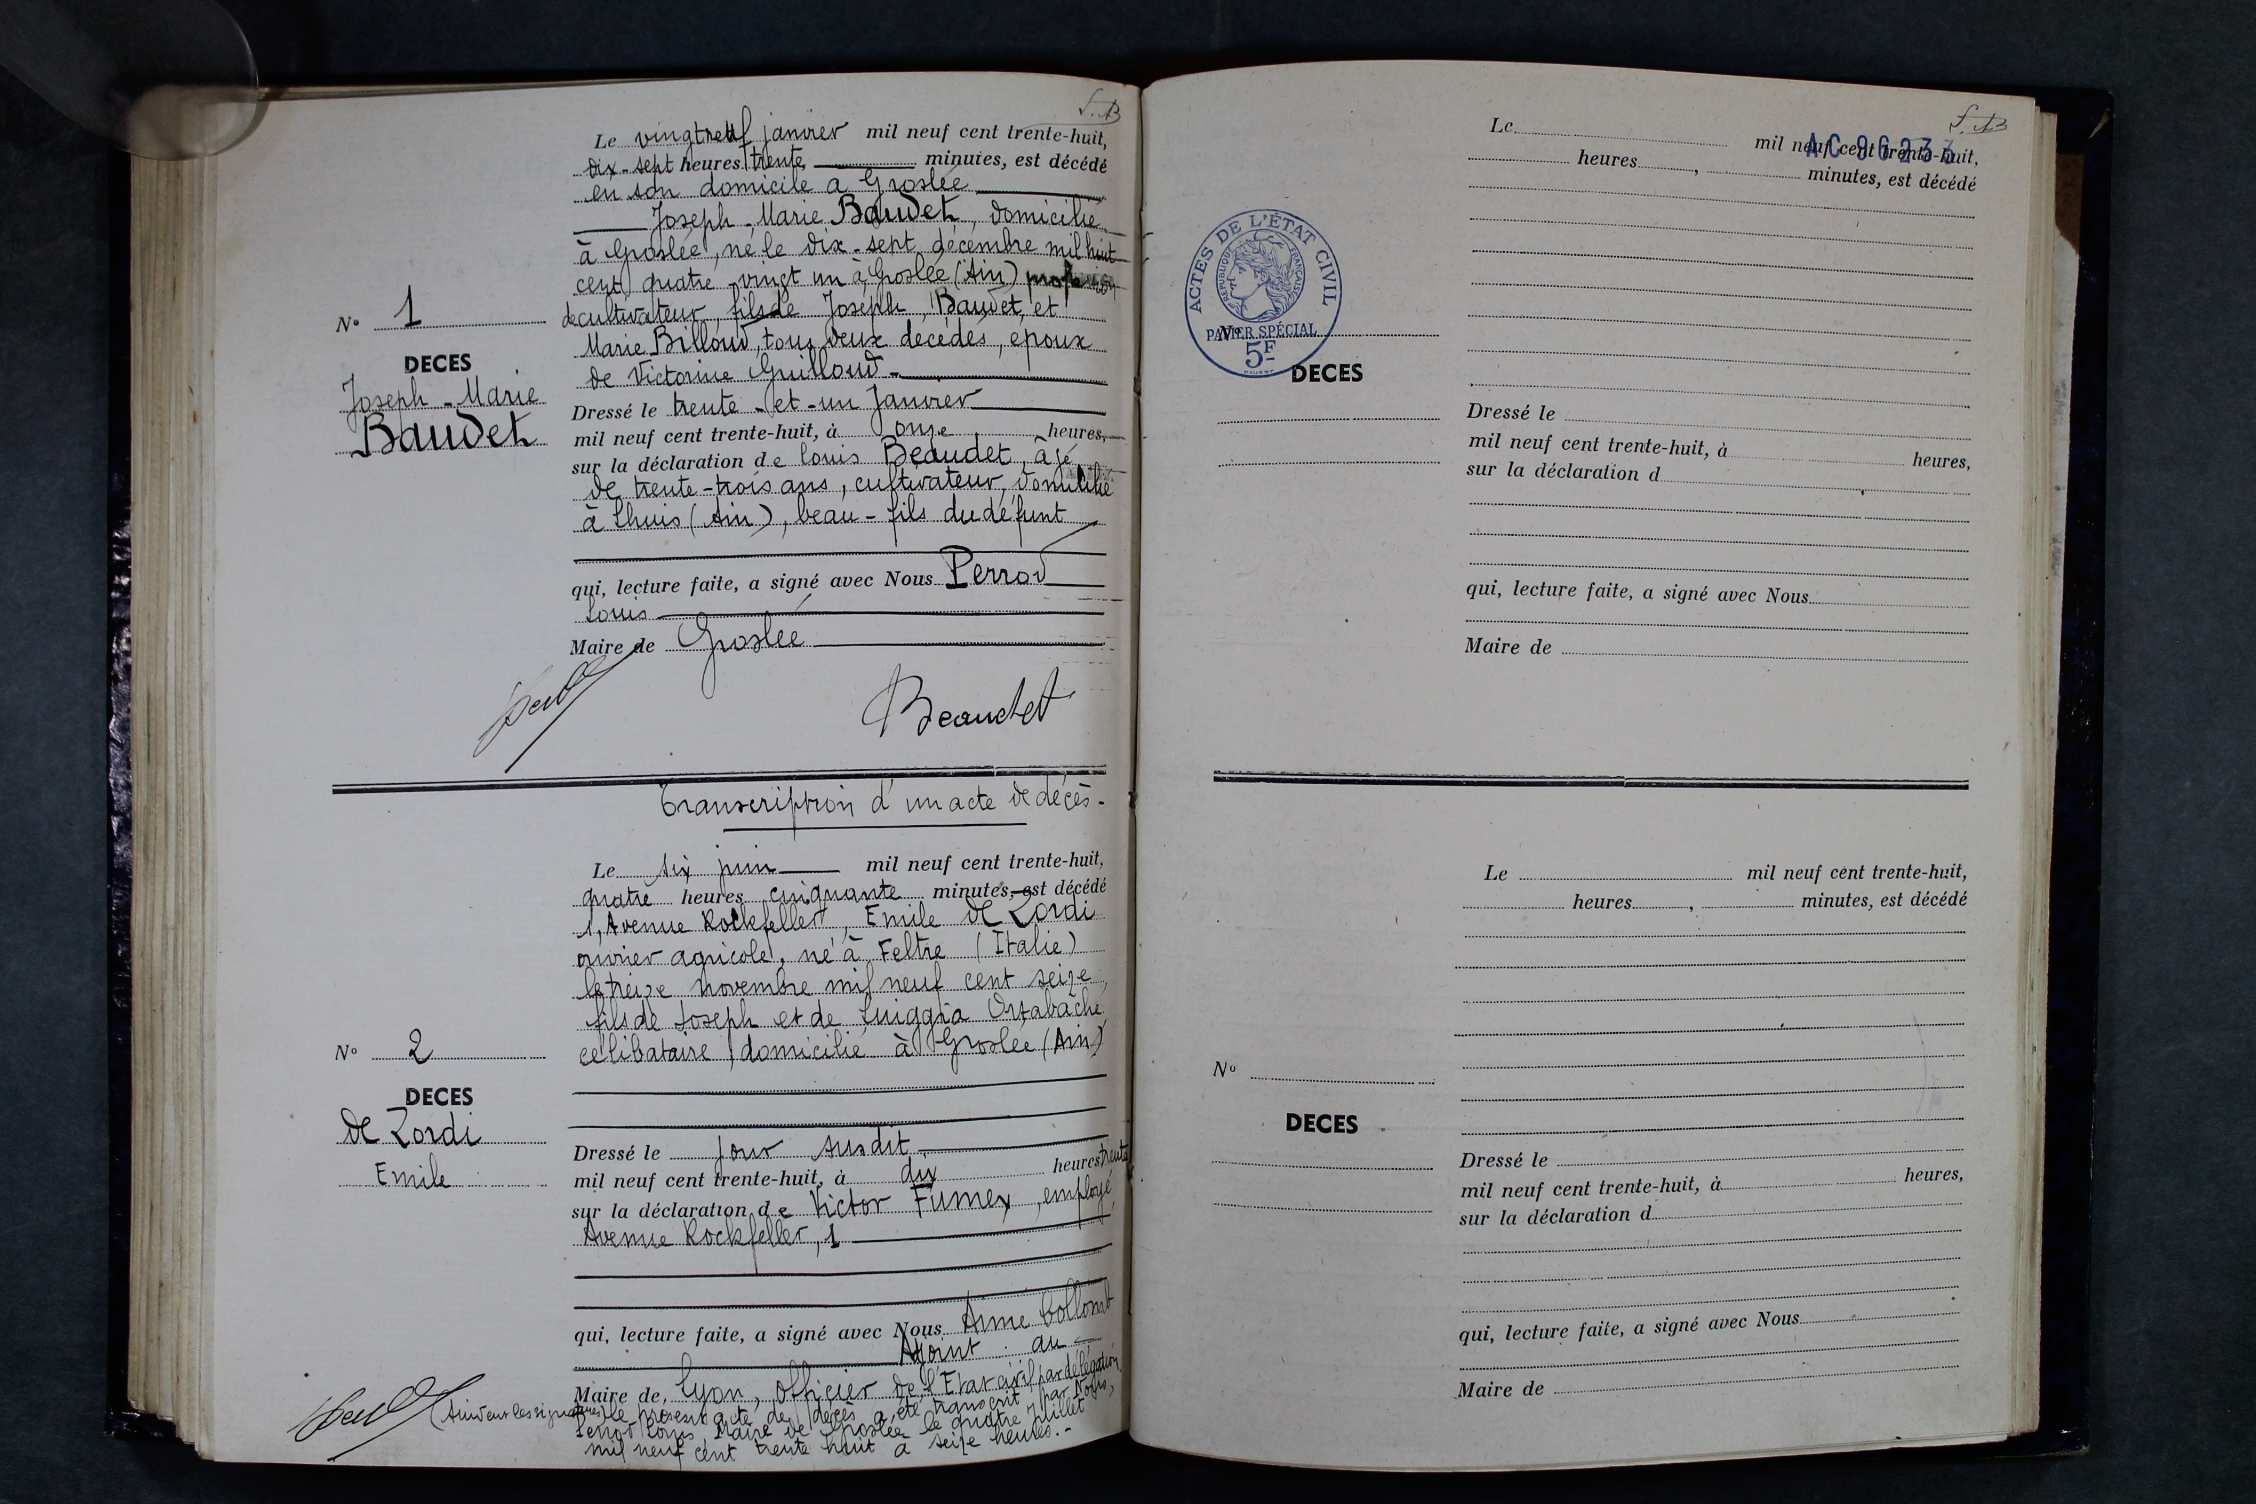 S.B
Le vingt neuf janvier mil neuf cent trente-huit,
dix-sept heures trente, minutes, est décédé
en son domicile à Groslée
Joseph-Marie Baudet, domicilié
à Groslée, né le dix-sept décembre mil huit
cent quatre vingt un à Groslée (Ain)
de cultivateur, fils de Joseph, Baudet, et
Marie Billoud, tous deux décédés, époux
de Victorine Guilloud.
N° 1
DECES
Joseph-Marie
Baudet
Dressé le trente-et-un Janvier
mil neuf cent trente-huit, à onze heures,
sur la déclaration de Louis Beaudet, âgé
de trente-trois ans, cultivateur, domicilié
à Lhuis (Ain), beau-fils du défunt
qui, lecture faite, a signé avec Nous Perrod
Louis
Maire de Groslée
Beaudet
Transcription d'un acte de décès.
Le six juin mil neuf cent trente-huit,
quatre heures cinquante minutes, est décédé
1, Avenue Rockfeller, Emile de Zordi
ouvrier agricole, né à Feltre (Italie)
le treize novembre mil neuf cent seize,
fils de Joseph et de Luiggia
célibataire, domicilié à Groslée (Ain)
N° 2
DECES
de Zordi
Emile
Dressé le jour susdit
mil neuf cent trente-huit, à dix heures trente
sur la déclaration de Victor Fumex, employé,
Avenue Rockfeller, 1
qui, lecture faite, a signé avec Nous Aimé
Adjoint au
Maire de Lyon, Officier de l'Etat civil par délégation
(Suivent les signatures) le présent acte de décès a été transcrit par Nous,
Perrod Louis, Maire de Groslée le quatre juillet
mil neuf cent trente huit à seize heures.-
S.B
AC 96233
Le mil neuf cent trente-huit,
heures , minutes, est décédé
ACTES DE L'ÉTAT CIVIL
RÉPUBLIQUE FRANÇAISE
PAPIER SPÉCIAL
5F
N°
DECES
Dressé le
mil neuf cent trente-huit, à heures,
sur la déclaration d
qui, lecture faite, a signé avec Nous
Maire de
Le mil neuf cent trente-huit,
heures , minutes, est décédé
N°
DECES
Dressé le
mil neuf cent trente-huit, à heures,
sur la déclaration d
qui, lecture faite, a signé avec Nous
Maire de